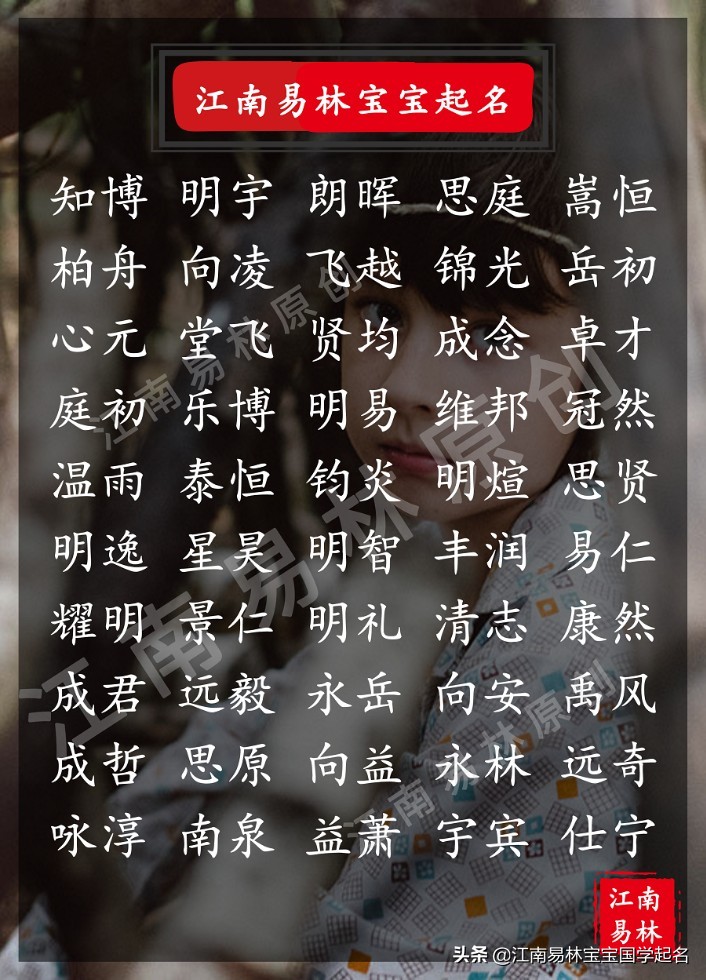 江南易林宝宝起名
知博 明宇 朗晖 思庭 嵩恒
柏舟 向凌 飞越 锦光 岳初
心元 堂飞 贤均 成念 卓才
庭初 乐博 明易 维邦 冠然
温雨 泰恒 钧炎 明煊 思贤
明逸 星昊 明智 丰润 易仁
耀明 景仁 明礼 清志 康然
成君 远毅 永岳 向安 禹风
成哲 思原 向益 永林 远奇
咏淳 南泉 益萧 宇宾 仕宁
江南易朴原创
江南易林原创
江南易林原创
江南
易林
头条 @江南易林宝宝国学起名